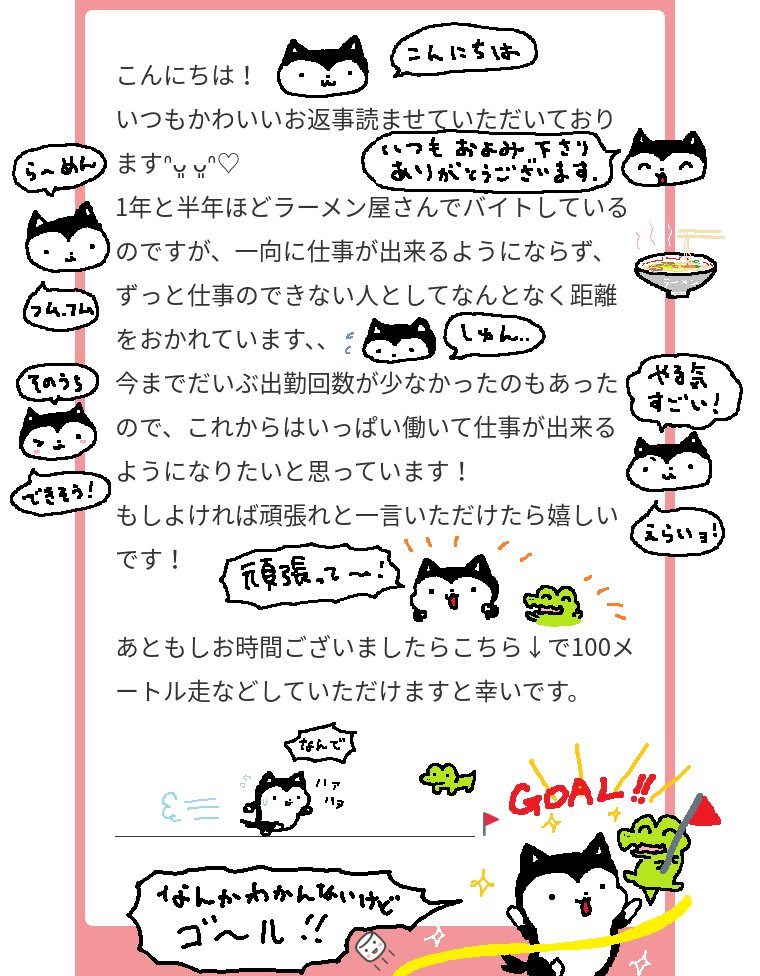 こんにちは！
こんにちは
いつもかわいいお返事読ませていただいており
ますᐢ⩌⩌ᐢ♡
いつも およみ 下さり
ありがとうございます.
ら〜めん
1年と半年ほどラーメン屋さんでバイトしている
のですが、一向に仕事が出来るようにならず、
ラーメン
フム、フム
ずっと仕事のできない人としてなんとなく距離
をおかれています、、
しゅん..
今までだいぶ出勤回数が少なかったのもあった
ので、これからはいっぱい働いて仕事が出来る
ようになりたいと思っています！
そのうち
できそう!
やる気
すごい!
えらいョ!
もしよければ頑張れと一言いただけたら嬉しい
です！
頑張って〜!
あともしお時間ございましたらこちら↓で100メ
ートル走などしていただけますと幸いです。
なんで
ハァ
ハァ
GOAL!!
なんかわかんないけど
ゴ〜ル!!